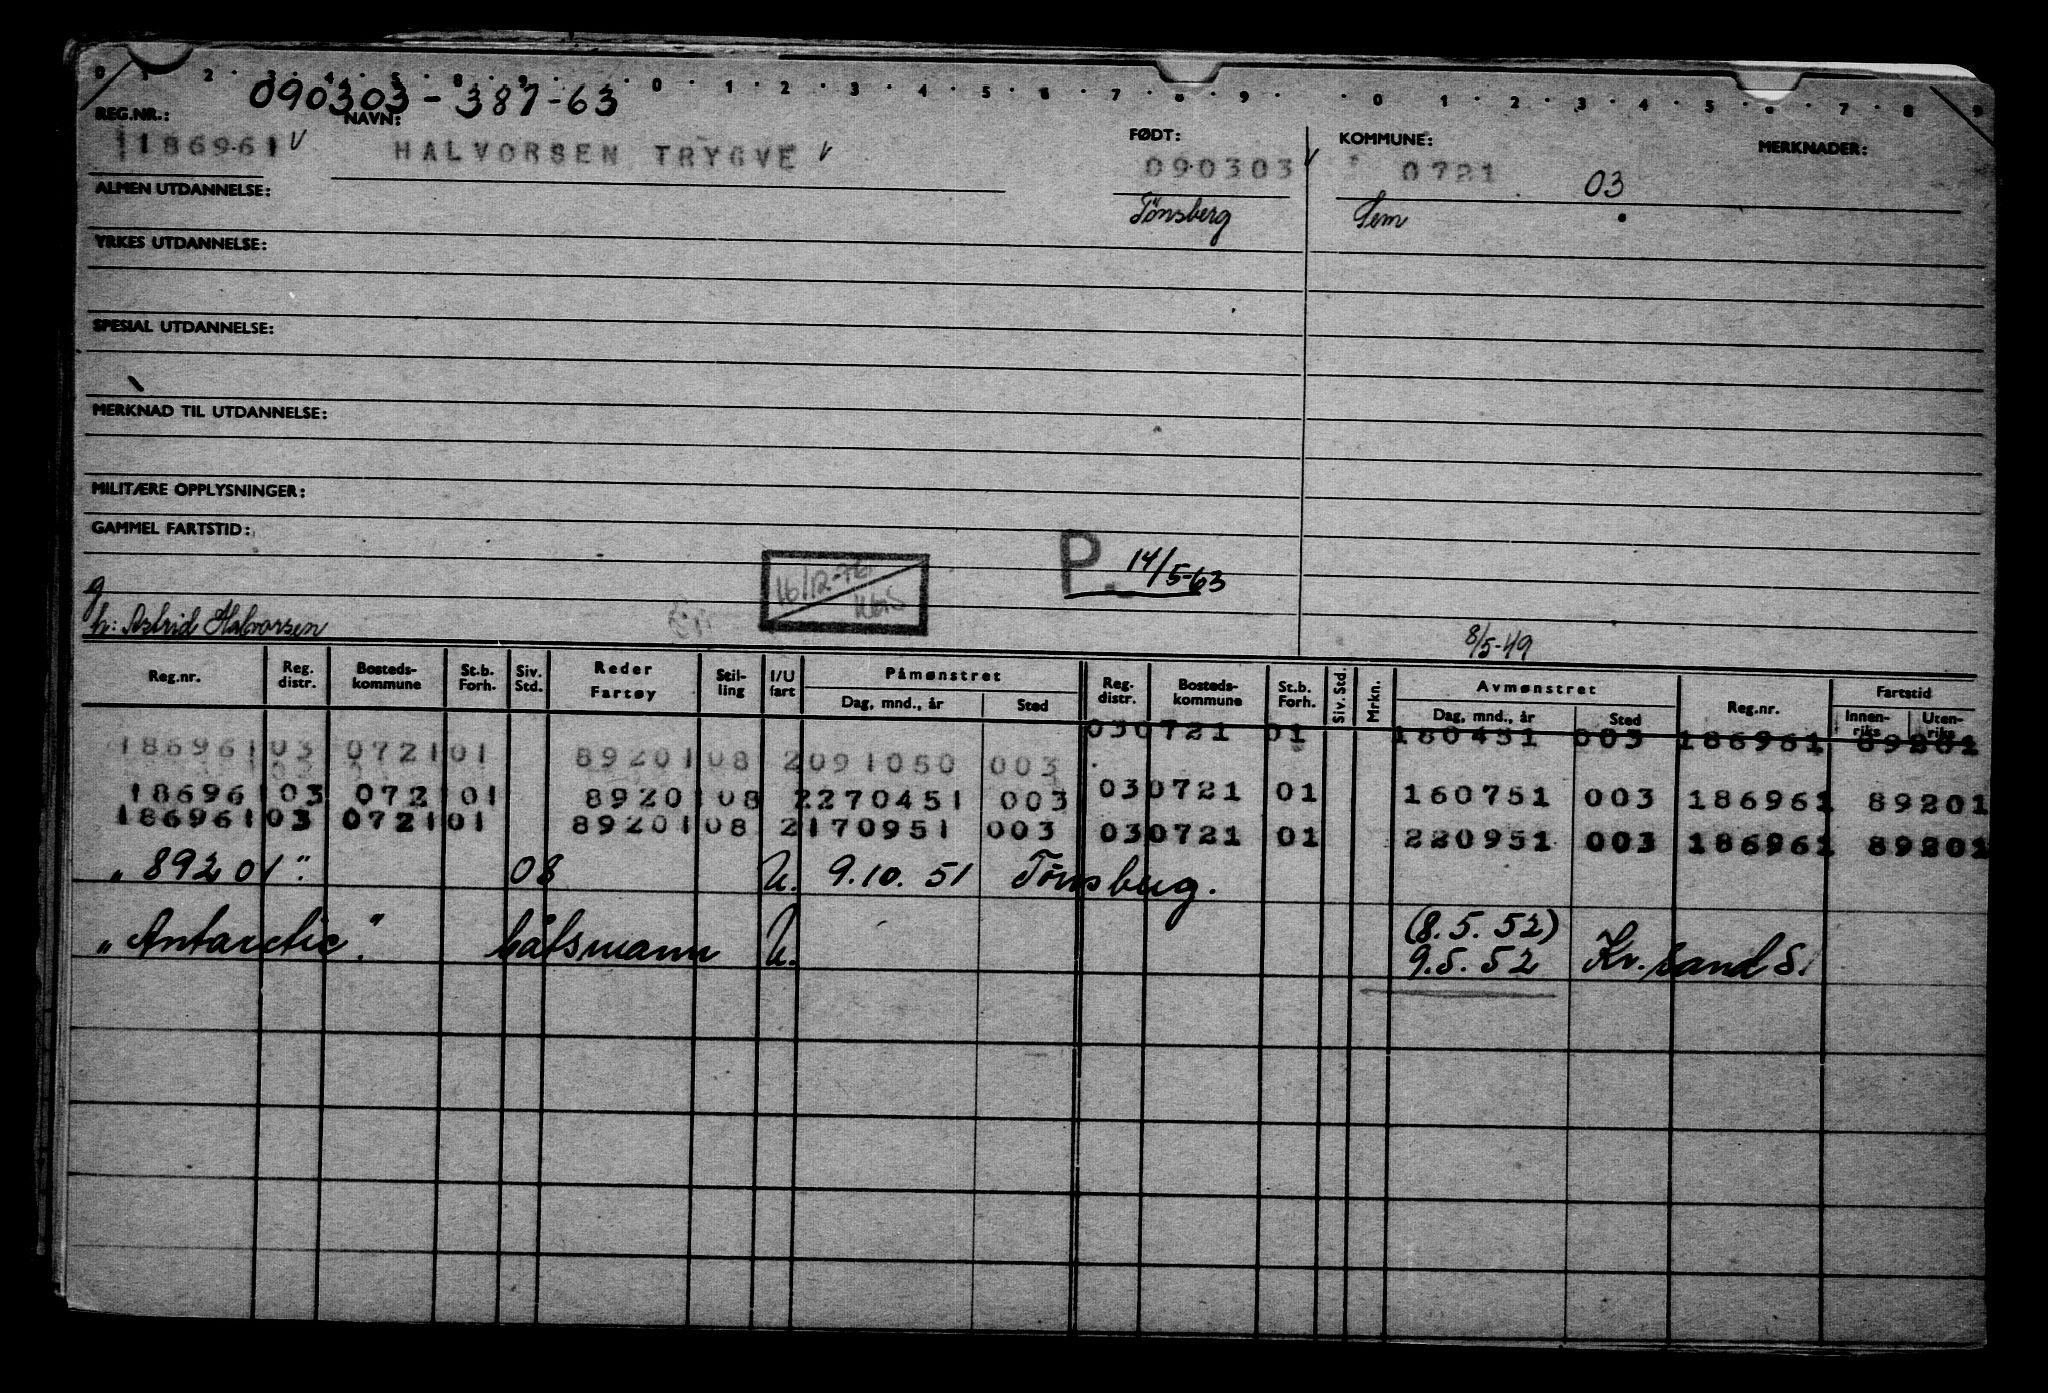 0 1 2 3 4 5 8 9 0 1 2 3 4 5 6 7 8 9 0 1 2 3 4 5 6 7 8 9
090303-387-63
REG.NR.: NAVN: FØDT: KOMMUNE: MERKNADER:
186961 HALVORSEN TRYGVE 090303 0721 03
ALMEN UTDANNELSE: Tönsberg Sem
YRKES UTDANNELSE:
SPESIAL UTDANNELSE:
MERKNAD TIL UTDANNELSE:
MILITÆRE OPPLYSNINGER:
GAMMEL FARTSTID:
P. 14/5-63
16/12-76
g
h: Astrid Halvorsen 8/5-49
Reg.nr. Reg. distr. Bosteds-kommune St.b. Forh. Siv. Std. Reder Fartøy Stil-ling I/U fart Påmønstret Dag, mnd., år Sted Reg. distr. Bosteds-kommune St.b. Forh. Siv. Std. Mrkn. Avmønstret Dag, mnd., år Sted Reg.nr. Fartstid Innen-riks Uten-riks
186961 03 0721 01 89201 08 2 091050 003 03 0721 01 180451 003 186961 89201
186961 03 0721 01 89201 08 2 270451 003 03 0721 01 160751 003 186961 89201
186961 03 0721 01 89201 08 2 170951 003 03 0721 01 220951 003 186961 89201
"89201". 08 U. 9.10.51 Tönsberg.
"Antarctic". båtsmann U. (8.5.52) 9.5.52 Kr.sand S.